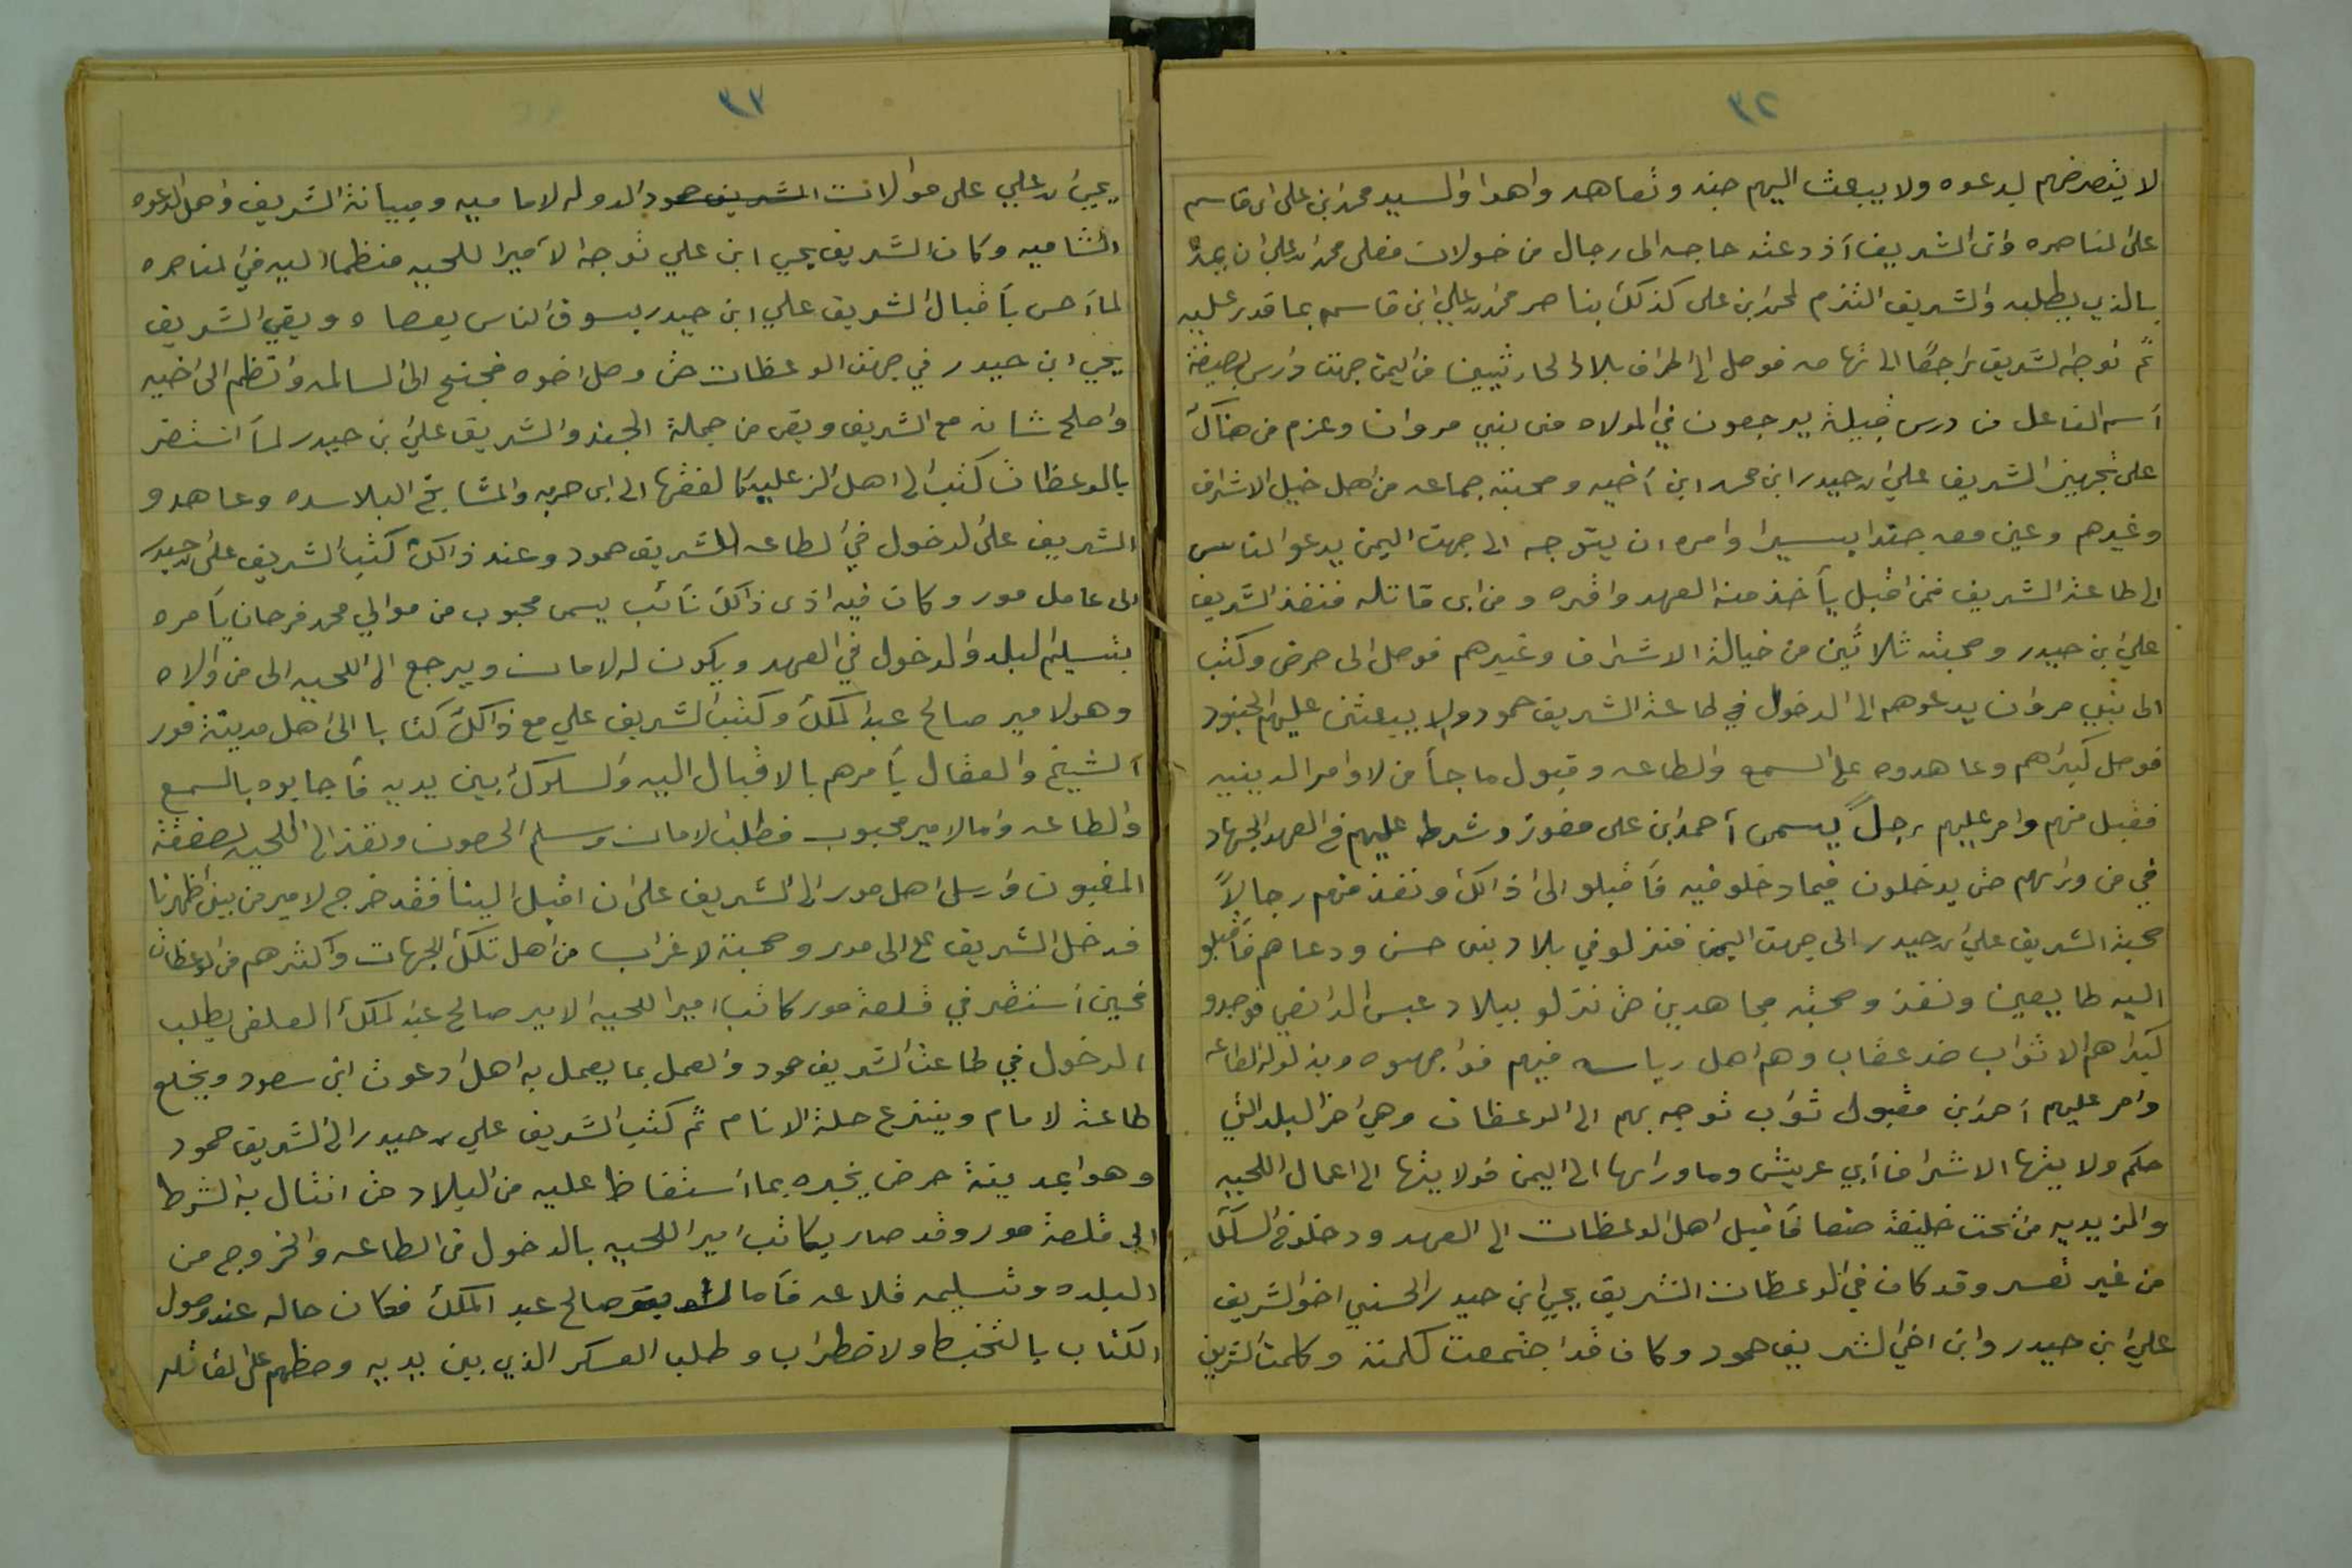 ٣٢
لا يتعرضهم بدعوه ولا يبعث اليهم جند وتعاهد واهدا والسيد محمد ابن على ابن قاسم
على المناصره وان الشريف اذ دعته حاجه الى رجال من خولان فعلى محمد ابن علي ان يمده
بالذي يطلبه والشريف التزم لمحمد ابن على كذلك يناصر محمد ابن علي ابن قاسم بما قدر عليه
ثم توجه الشريف راجعًا الى تهامه فوصل الى اطراف بلاد الحارثيين من اليمن جهت دارس بصيغة
اسم الفاعل من درس قبيلة يرجعون في المولاه من بني مروان وعزم من هناك
على تجهيز الشريف علي ابن حيدر ابن محمد ابن أخيه وصحبته جماعه من اهل خيل الاشراف
وغيرهم وعين معه جندا يسيرا وامره ان يتوجه الى جهت اليمن يدعو الناس
الى طاعة الشريف فمن اقبل يأخذ منه العهد واقره ومن ابى قاتله فنفذ الشريف
علي بن حيدر وصحبته ثلاثين من خيالة الاشراف وغيرهم فوصل الى حرض وكتب
الى بني مروان يدعوهم الى الدخول في طاعة الشريف حمود ولا يبعثن عليهم الجنود
فوصل كبراهم وعاهدوه على السمع والطاعه وقبول ما جأ من لاوامر الدينيه
فقبل منهم وامر عليهم رجلً يسمى أحمد ابن على مفوز وشرط عليهم في العهد الجهاد
في من ورائهم حتى يدخلون فيما دخلو فيه فأقبلو الى اذالك ونفذ منهم رجالاً
صحبة الشريف علي ابن حيدر الى جهت اليمن فنزلو في بلاد بني حسن ودعاهم فأقبلو
اليه طايعين ونفذ وصحبته مجاهدين حتى نزلو ببلاد عبس فوجدو
كبراهم الاثواب ضد عقاب وهم اهل رياسه فيهم فواجهوه وبذلو له الطاعه
وامر عليهم احمد ابن مقبول ثواب توجه بهم الى الوعظات وهي اخر البلد التي
حكم ولايتها الاشراف أبي عريش وما ورائها الى اليمن فولايتها الى اعمال اللحيه
والزيديه من تحت خليفة صنعا فأقبل اهل الوعظات الى العهد ودخلو في السلك
من غير تعسر وقد كان في الوعظات الشريف يحيى ابن حيدر الحسني اخو الشريف
علي ابن حيدر وابن اخي الشريف حمود وكان قد اجتمعت كلمته وكلمت الشريف
٣٣
يحيى ابن علي على موالات الشريف حمود الدوله لاماميه ومباينة الشريف واهل الدعوه
الشاميه وكان الشريف يحيى ابن علي توجه الأميرا للحيه منظما اليه في المناصره
لما أحس بأقبال الشريف علي ابن حيدر يسوق الناس بعصاه وبقي الشريف
يحيى ابن حيدر في جهت الوعظات حتى وصل اخوه فجنح الى السالمه وانظم الى اخيه
واصلح شانه مع الشريف وبقى من جملة الجند والشريف علي بن حيدر لمأ استقر
بالوعظات كتب الى اهل الزعليه كالفقها الى ابى حربه والمشايخ البلاسده وعاهدو
الشريف على الدخول في الطاعه للشريف حمود وعند ذالك كتب الشريف على ابن حيدر
الى عامل مور وكان فيه اذى ذالك نائب يسمى محبوب من موالي محمد فرحان يأمره
بتسليم البلد والدخول في العهد ويكون له لامان ويرجع الى اللحيه الى من والاه
وهو لامير صالح عبد الملك وكتب الشريف علي مع ذالك كتابا الى اهل مدينة مور
الشيخ والعقال يأمرهم بالاقبال اليه والسلوك بين يديه فأجابوه بالسمع
والطاعه واما لامير محبوب فطلب لامان وسلم الحصون ونفذ الى اللحيه بصفقة
المغبون وارسل اهل مور الى الشريف على ان اقبل الينا فقد خرج لامير من بين اظهرنا
فدخل الشريف على الى مور وصحبته لاعراب من اهل تلك الجهات واكثرهم من الوعظات
فحين أستقر في قلعة مور كاتب امير اللحيه الامير صالح عبد الملك العلفى يطلب
الدخول في طاعت الشريف حمود والعمل بما يعمل به اهل دعوت ابن سعود ويخلع
طاعة لامام وينزع حلة الانام ثم كتب الشريف علي ابن حيدر الى الشريف حمود
وهو ابمدينة حرض يخبره بما أستفاظ عليه من البلاد حتى انثال به الشرط
الى قلعة مور وقد صار يكاتب امير اللحيه بالدخول فى الطاعه والخروج من
البلده وتسليمه قلاعه فأما الشريف صالح عبد الملك فكان حاله عند وصول
الكتاب بالتخبط ولاضطراب وطلب العسكر الذي بين يديه وحظهم على المقاتله